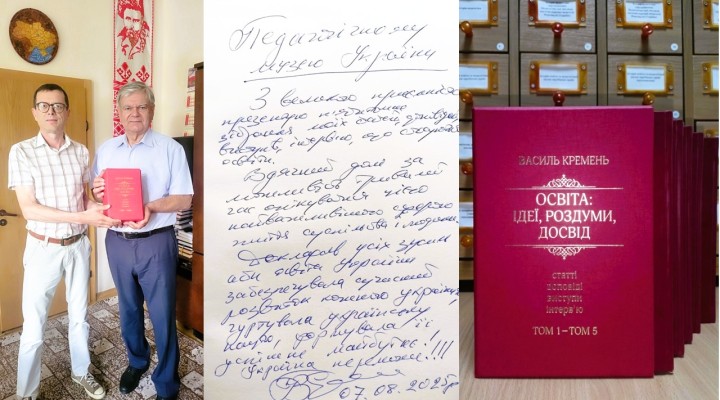 Педагогічному
музею України
З великою приємністю
презентую п'ятитомне
зібрання моїх статей, доповідей,
виступів, інтерв'ю, що стосуються
освіти.
Вдячний долі за
можливість тривалий
час опікуватися цією
найважливішою сферою
життя суспільства і людини.
Докладав усіх зусиль
аби освіта України
забезпечувала сучасний
розвиток кожного українця,
гуртувала українську
націю, формувала її
успішне майбутнє!
Україна переможе!!!
07.08.2025р.
ВАСИЛЬ КРЕМЕНЬ
ОСВІТА:
ІДЕЇ, РОЗДУМИ,
ДОСВІД
статті
доповіді
виступи
інтерв'ю
ТОМ 1 – ТОМ 5